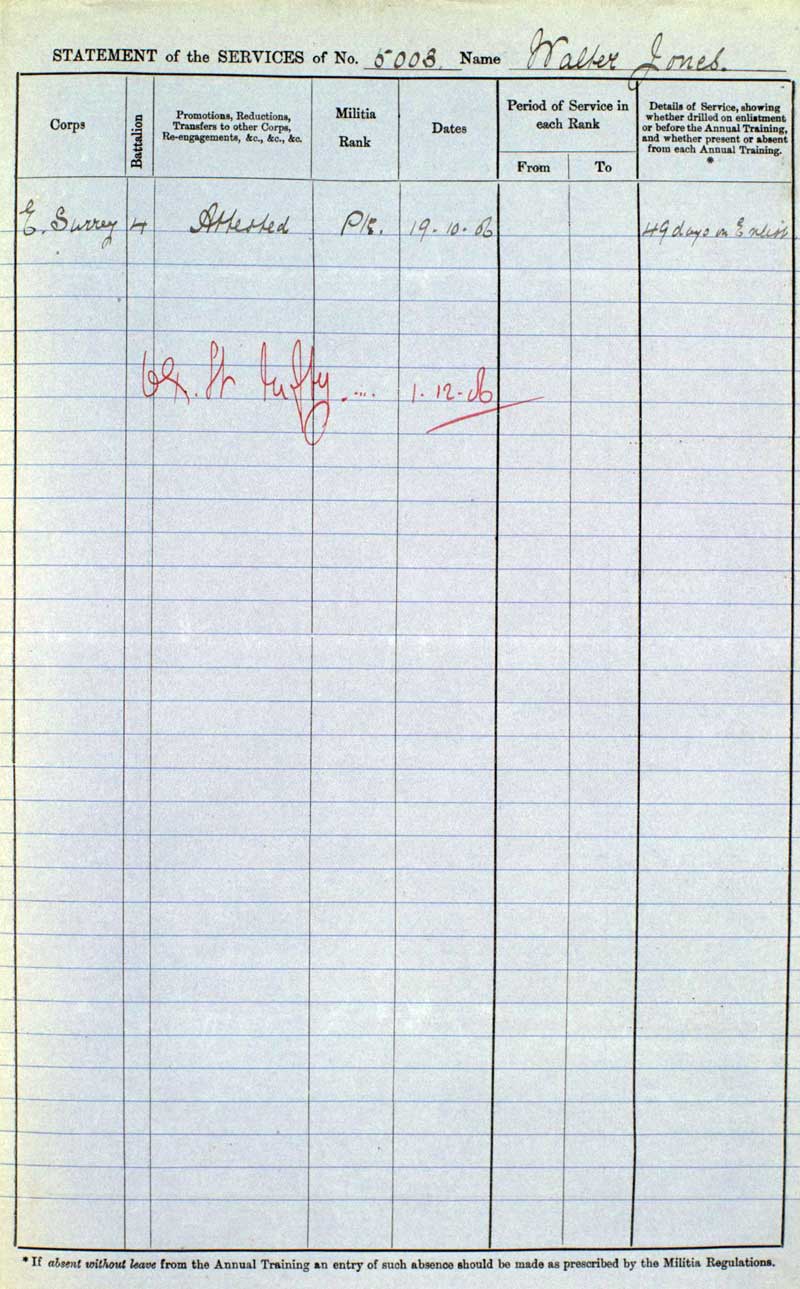 STATEMENT of the SERVICES of No. 5003. Name Walter Jones.
Corps
Battalion
Promotions, Reductions,
Transfers to other Corps,
Re-engagements, &c., &c., &c.
Militia
Rank
Dates
Period of Service in
each Rank
From To
Details of Service, showing
whether drilled on enlistment
or before the Annual Training,
and whether present or absent
from each Annual Training.
*
E. Surrey 4 Attested Pte. 19.10.06 49 days on Enlist.
1.12.06
* If absent without leave from the Annual Training an entry of such absence should be made as prescribed by the Militia Regulations.